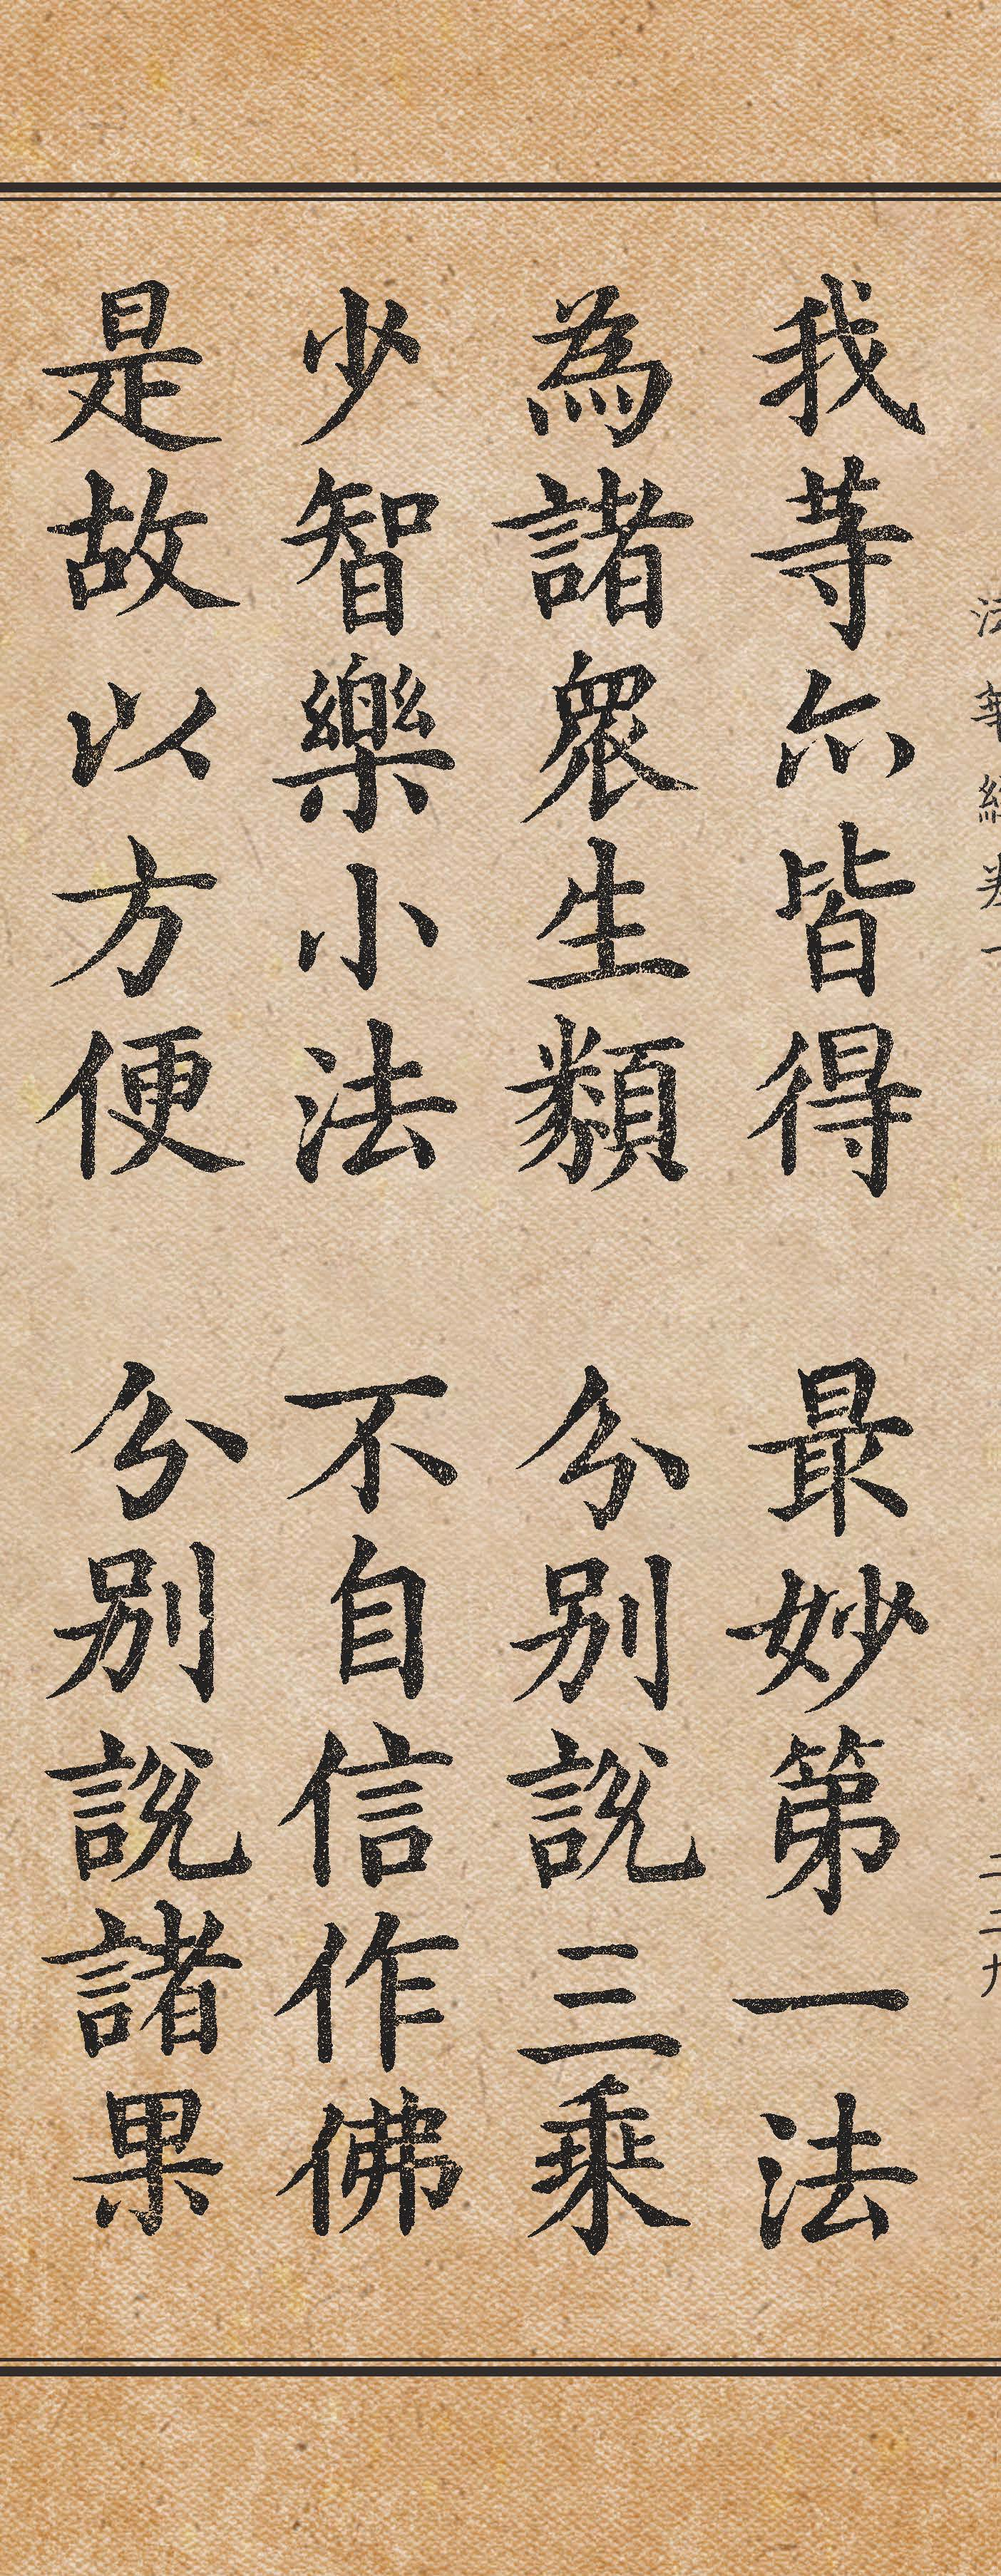 法華經卷一 二二九
我等亦皆得 最妙第一法
為諸眾生類 分別說三乘
少智樂小法 不自信作佛
是故以方便 分別說諸果